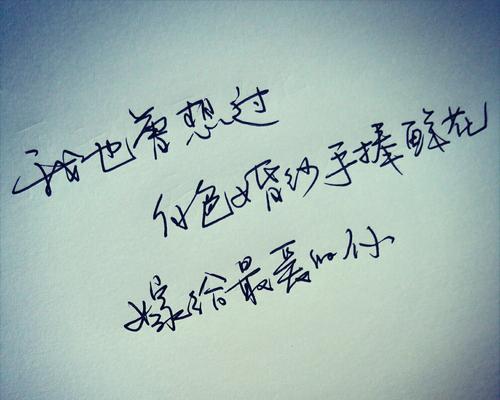 我也曾想过
白色婚纱手捧鲜花
嫁给最爱的你